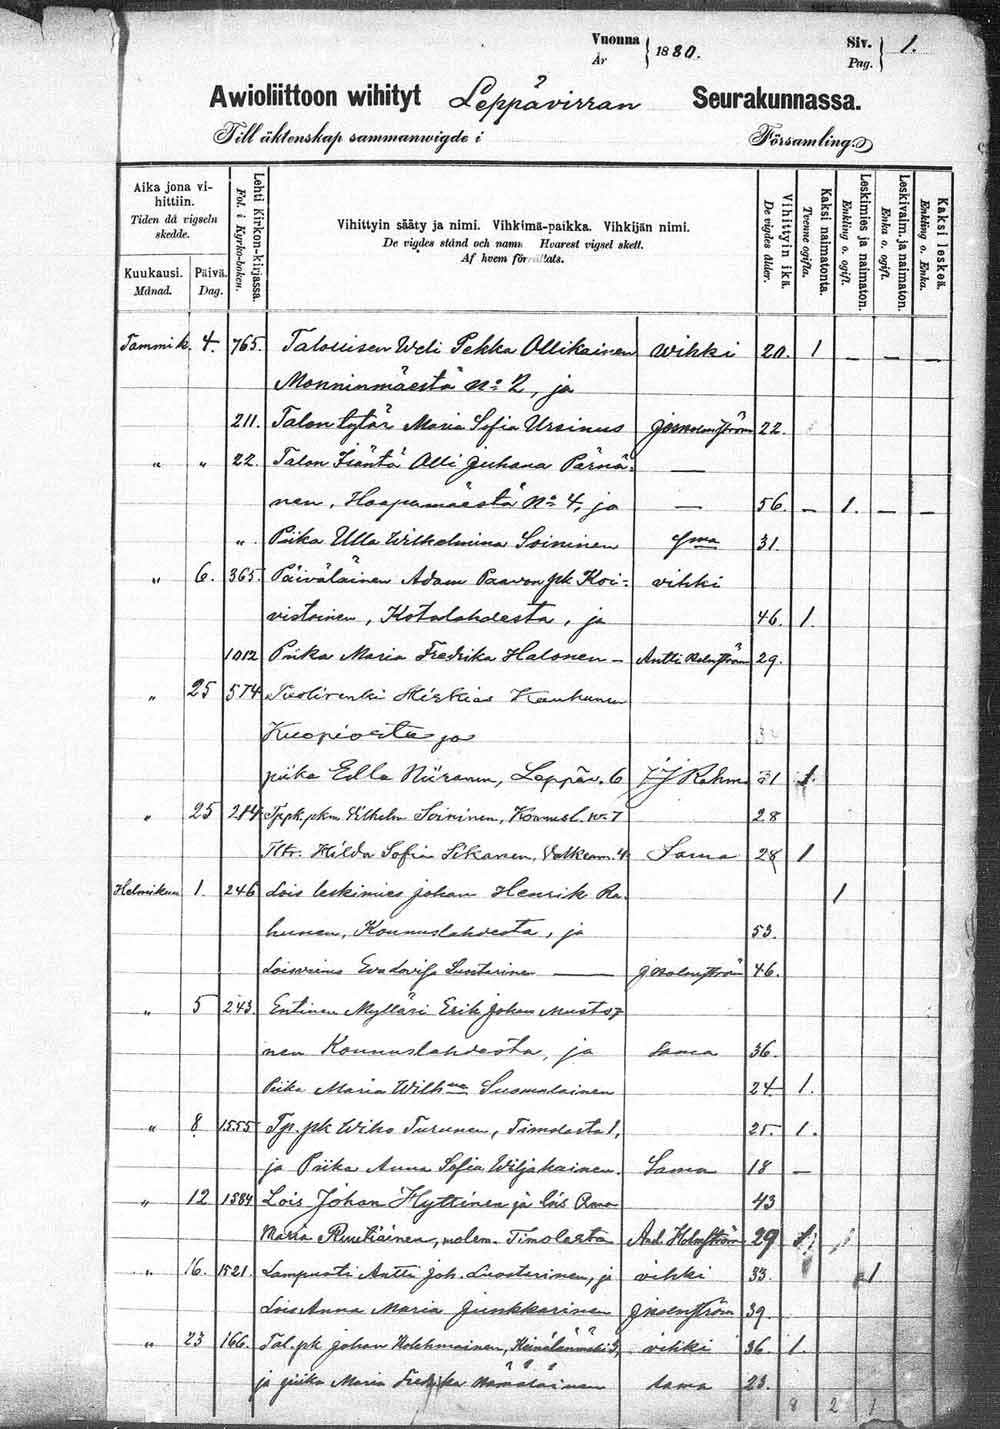 Vuonna 1880. Siv. 1.
År Pag.
Awioliittoon wihityt Leppävirran Seurakunnassa.
Till äktenskap sammanwigde i Församling.
Aika jona vihittiin.
Tiden då vigseln skedde.
Kuukausi. Månad.
Päivä. Dag.
Lehti Kirkon-kirjassa.
Fol. i Kyrko-boken.
Vihittyin sääty ja nimi. Vihkimä-paikka. Vihkijän nimi.
De vigdes stånd och namn Hvarest vigsel skett.
Af hvem förrättats.
Vihittyin ikä.
De vigdes ålder.
Kaksi naimatonta.
Tvenne ogifta.
Leskimies ja naimaton.
Enkling o. ogift.
Leskivaim. ja naimaton.
Enka o. ogift.
Kaksi leskeä.
Enkling o. Enka.
Tammik. 4. 765. Talollisen Weli Pekka Ollikainen wihki 20. 1 — — —
Monninmäestä No 2, ja
211. Talon tytär Maria Sofia Ursinus 22.
" " 22. Talon Isäntä Olli Juhana Pärnä- —
nen, Haapamäestä No 4, ja — 56. — 1. — —
" Piika Ulla Wilhelmina Soininen 31.
" 6. 365. Päiväläinen Adam Paavon pk Koi- vihki
vistoinen, Kotalahdesta, ja 46. 1.
1012 Piika Maria Fredrika Halonen — Antti Holmström 29.
" 25 574 Hiskias Kauhanen
Kuopiosta ja
piika Edla Niiranen, Leppäv. 6 31 1.
" 25 284 Vilhelm Soininen, Konnusl. No 7 28
Hilda Sofia Sikanen, Valkeam. 4 Sama 28 1
Helmikuu 1. 246 Lois leskimies Johan Henrik Ra- 1
hunen, Konnuslahdesta, ja 53.
Luostarinen — 46.
" 5 243. Entinen Mylläri Erik Johan Musto-
nen Konnuslahdesta, ja Sama 36.
Piika Maria Wilhna Suomalainen 24. 1.
" 8. 1555 Tp. pk Wiho Turunen, Timolasta 1, 25. 1.
ja Piika Anna Sofia Wiljakainen. Sama 18 —
" 12 1584 Lois Johan Hyttinen ja lois Anna 43
Maria Ruutiainen, molem. Timolasta And. Holmström 29 1
" 16. 1521. Lampuoti Antti Joh. Luostarinen, ja vihki 33. 1
Lois Anna Maria Junkkarinen 39.
" 23 166. Tal. pk Johan Holehmainen, vihki 36. 1.
ja piika Maria Fredrika sama 23.
8 2 1